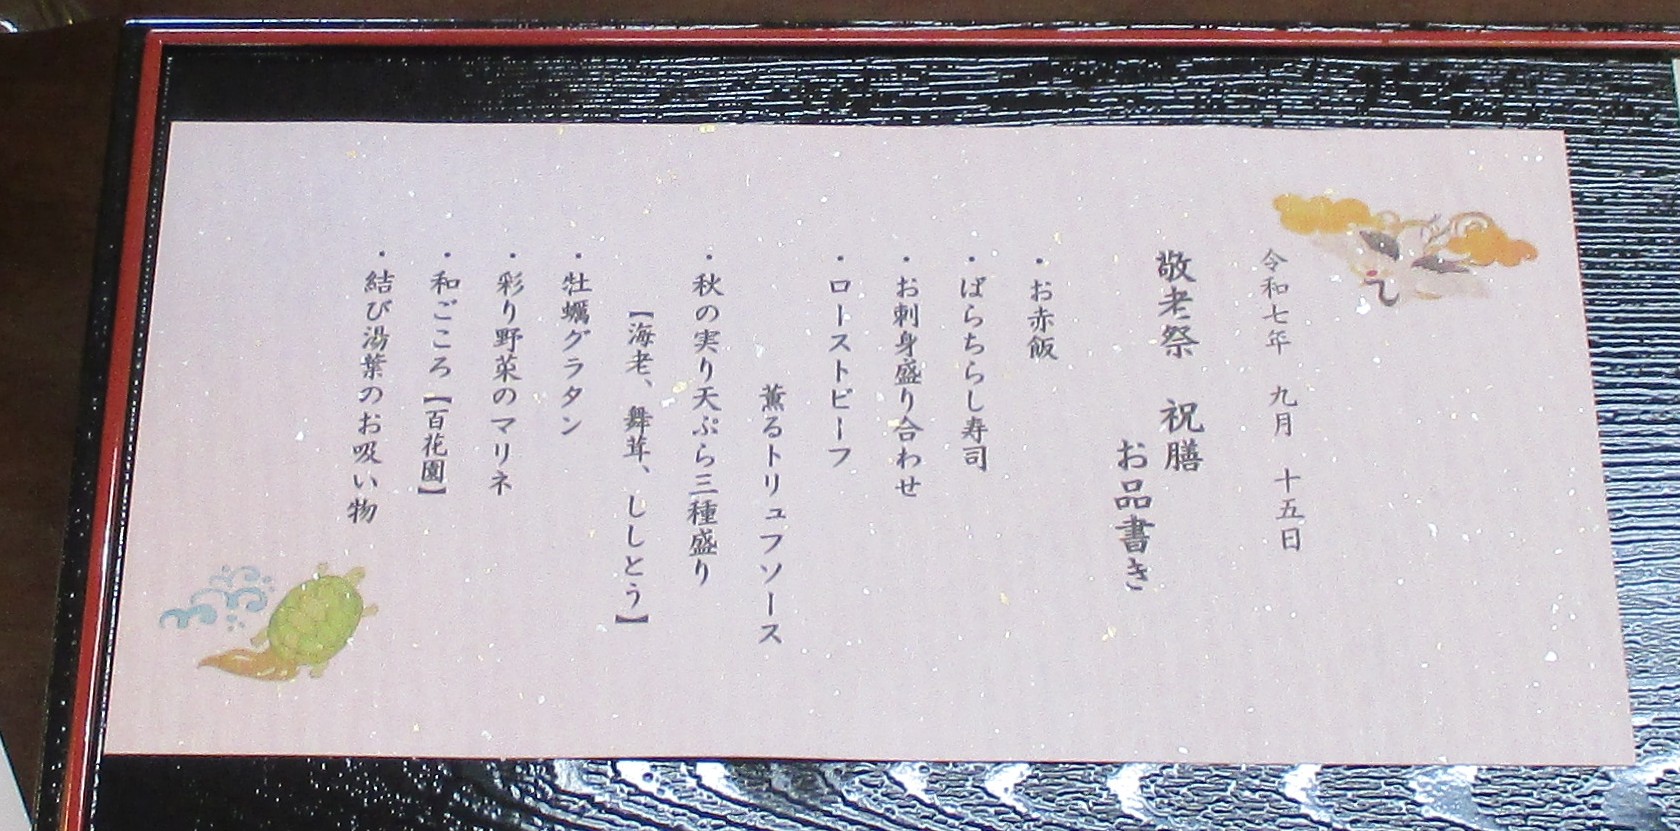 令和七年　九月　十五日
敬老祭　祝膳
お品書き
・お赤飯
・ばらちらし寿司
・お刺身盛り合わせ
・ローストビーフ
薫るトリュフソース
・秋の実り天ぷら三種盛り
【海老、舞茸、ししとう】
・牡蠣グラタン
・彩り野菜のマリネ
・和ごころ【百花園】
・結び湯葉のお吸い物